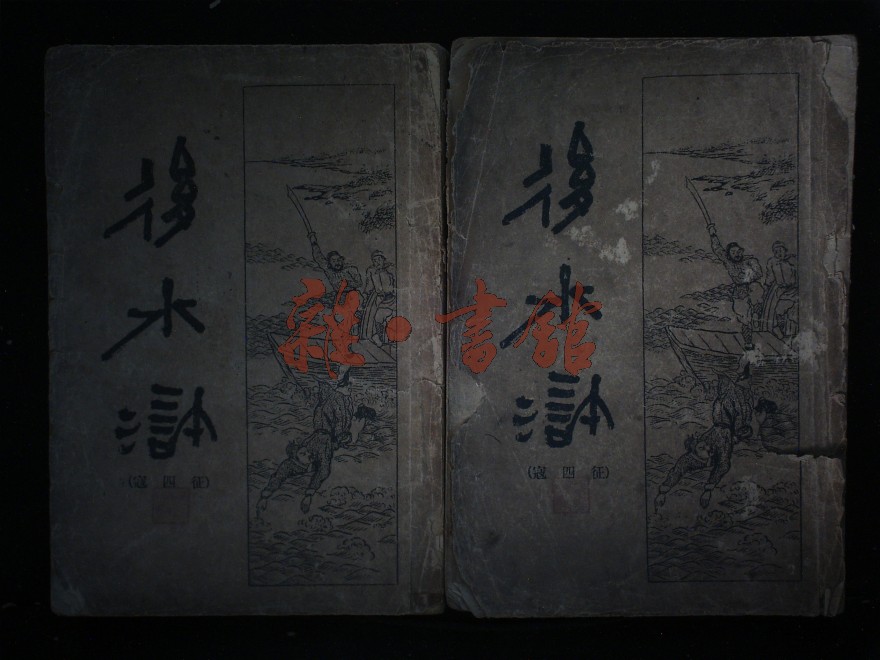 後
水
滸
（征四寇）
後
水
滸
（征四寇）
雜·書館